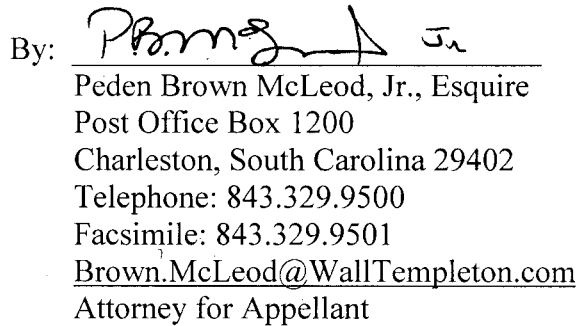 By: P.B. McLeod Jr
Peden Brown McLeod, Jr., Esquire
Post Office Box 1200
Charleston, South Carolina 29402
Telephone: 843.329.9500
Facsimile: 843.329.9501
Brown.McLeod@WallTempleton.com
Attorney for Appellant